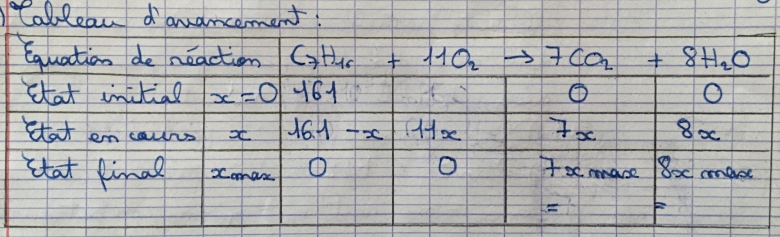 Tableau d'avancement :
Equation de réaction C7H16 + 11O2 → 7CO2 + 8H2O
Etat initial x=0 161 0 0
Etat en cours x 16.1 -x 11x 7x 8x
Etat final xmax 0 0 7x max 8x max
= =